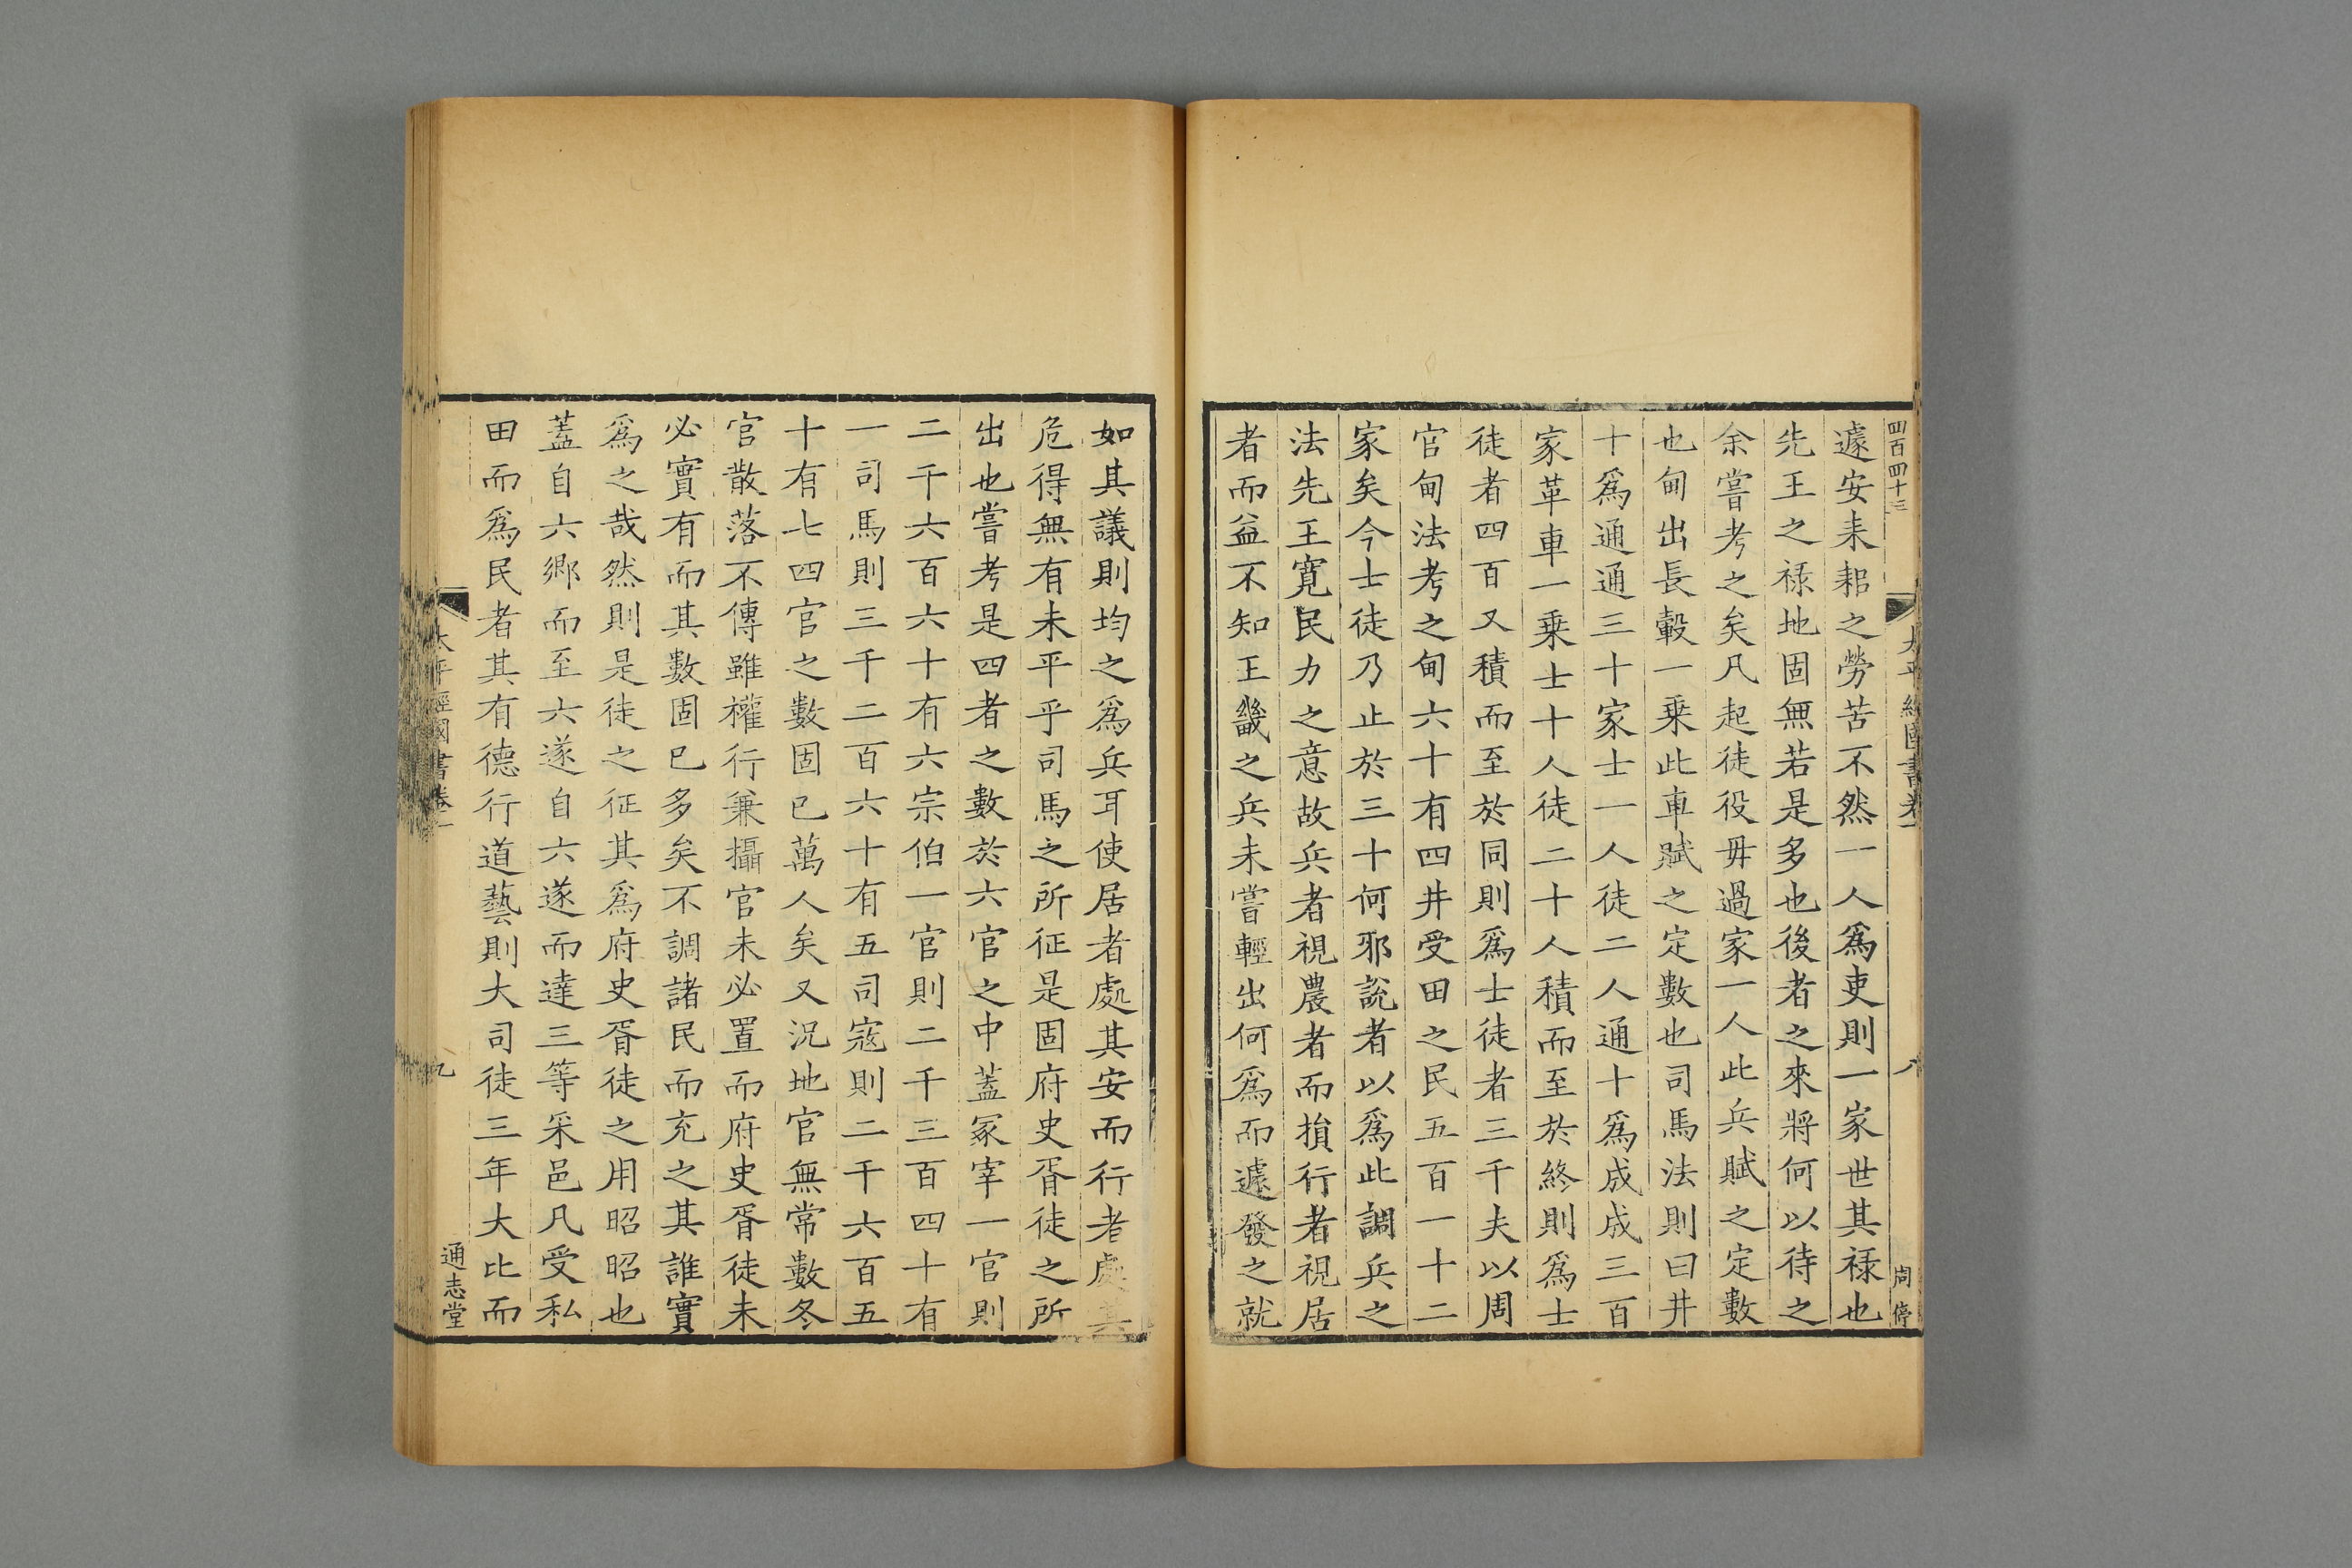 四百四十三
太平經國書卷一
八
周停
遽安耒耜之勞苦不然一人爲吏則一家世其祿也
先王之祿地固無若是多也後者之來將何以待之
余嘗考之矣凡起徒役毋過家一人此兵賦之定數
也甸出長轂一乗此車賦之定數也司馬法則曰井
十爲通通三十家士一人徒二人通十爲成成三百
家革車一乗士十人徒二十人積而至於終則爲士
徒者四百又積而至於同則爲士徒者三千夫以周
官甸法考之甸六十有四井受田之民五百一十二
家矣今士徒乃止於三十何邪說者以爲此調兵之
法先王寬民力之意故兵者視農者而損行者視居
者而益不知王畿之兵未嘗輕出何爲而遽發之就
如其議則均之爲兵耳使居者處其安而行者處其
危得無有未平乎司馬之所征是固府史胥徒之所
出也嘗考是四者之數於六官之中蓋冢宰一官則
二千六百六十有六宗伯一官則二千三百四十有
一司馬則三千二百六十有五司寇則二千六百五
十有七四官之數固已萬人矣又況地官無常數冬
官散落不傳雖權行兼攝官未必置而府史胥徒未
必實有而其數固已多矣不調諸民而充之其誰實
爲之哉然則是徒之征其爲府史胥徒之用昭昭也
蓋自六鄉而至六遂自六遂而達三等采邑凡受私
田而爲民者其有德行道藝則大司徒三年大比而
太平經國書卷一
九
通志堂